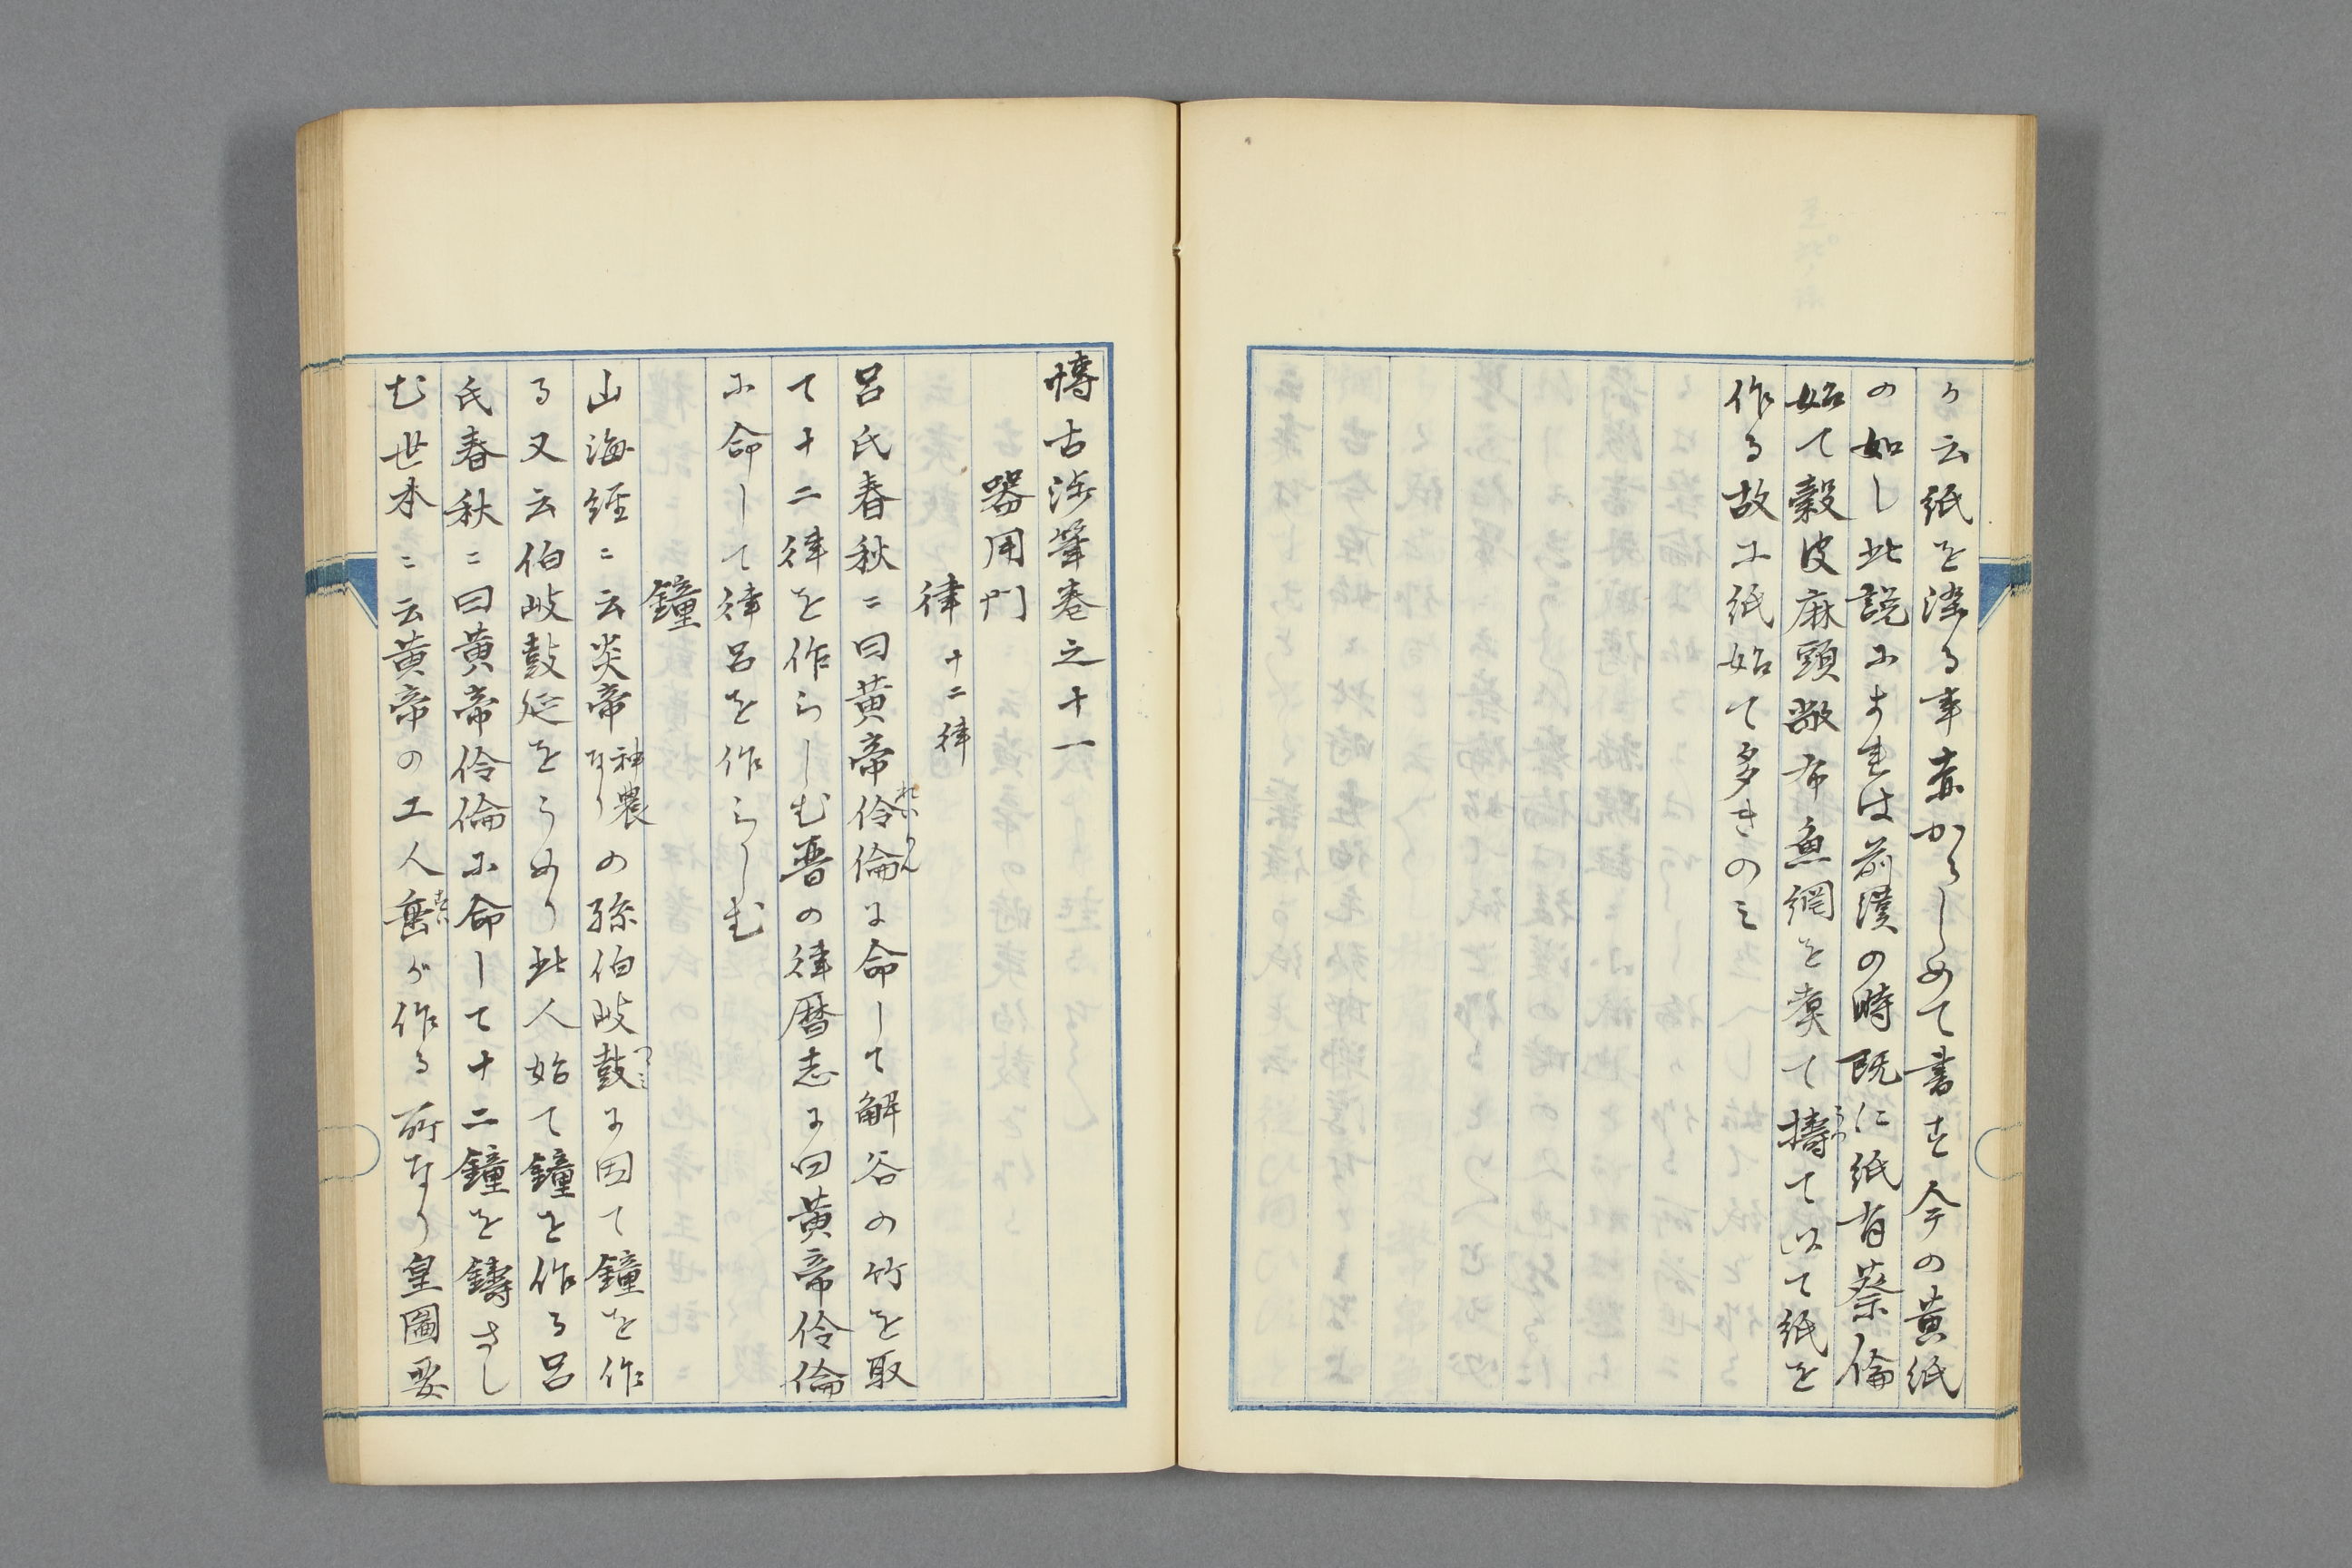 か云紙を染る事赤からしめて書す今の黄紙
の如し此説によれは前漢の時既に紙有蔡倫
始て穀皮麻頭敝布魚網を煑て擣て以て紙を
うつ
作る故に紙始て多きのミ
博古渉筆巻之十一
器用門
律 十二律
呂氏春秋ニ曰黄帝伶倫に命して解谷の竹を取
れいりん
て十二律を作らしむ晋の律暦志に曰黄帝伶倫
に命して律呂を作らしむ
鐘
山海経ニ云炎帝神農なりの孫伯岐鼓に因て鐘を作
つゝミ
る又云伯岐鼓延をうめり此人始て鐘を作る呂
氏春秋ニ曰黄帝伶倫に命して十二鐘を鋳さし
む世本ニ云黄帝の工人垂が作る所なり皇圖要
すい